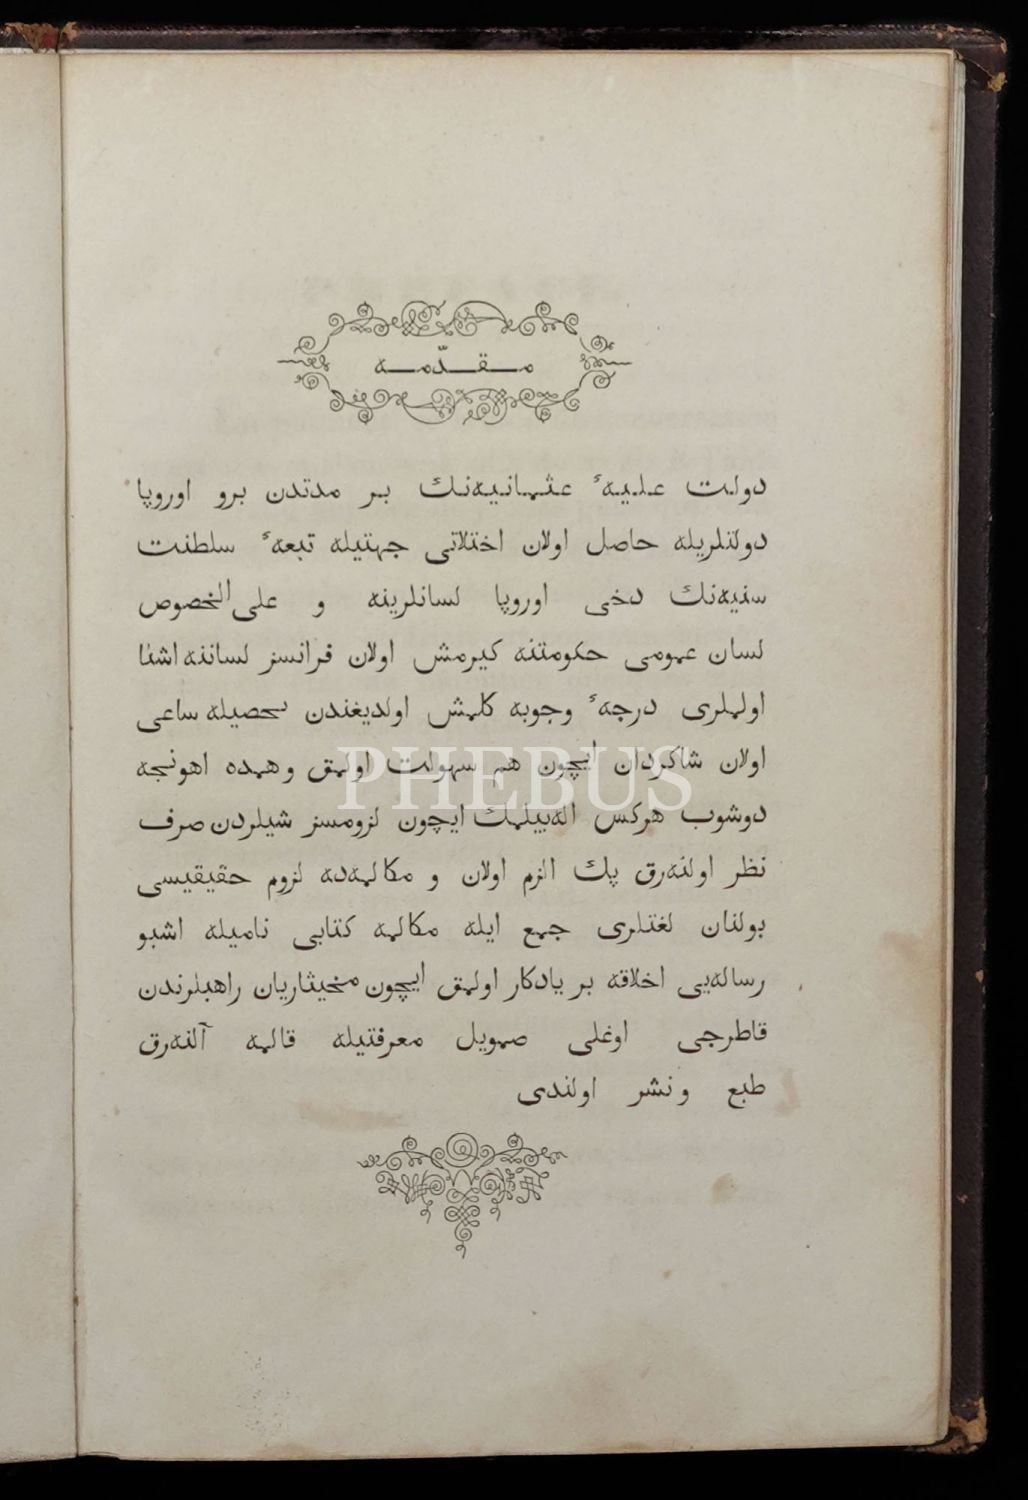 مقدّمه
دولت علیهٔ عثمانیه‌نك بر مدتدن برو اوروپا
دولتلریله حاصل اولان اختلاتی جهتیله تبعهٔ سلطنت
سنیه‌نك دخی اوروپا لسانلرینه و علی الخصوص
لسان عمومی حکومتنه کیرمش اولان فرانسز لساننه اشنا
اولملری درجهٔ وجوبه کلمش اولدیغندن تحصیله ساعی
اولان شاکردان ایچون هم سهولت اولمق وهمده اهونجه
دوشوب هرکس اله‌بیلمك ایچون لزومسز شیلردن صرف
نظر اولنه‌رق پك الزم اولان و مکالمه‌ده لزوم حقیقیسی
بولنان لغتلری جمع ایله مکالمه کتابی نامیله اشبو
رساله‌یی اخلاقه بر یادکار اولمق ایچون مخیثاریان راهبلرندن
قاطرجی اوغلی صمویل معرفتیله قالمه آلنه‌رق
طبع ونشر اولندی
PHEBUS